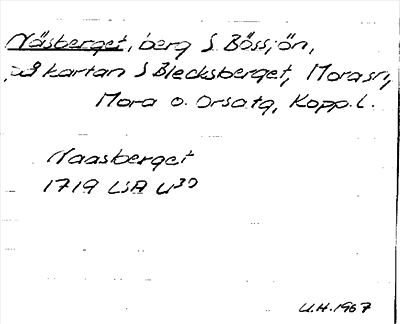 Näsberget, berg S. Bössjön,
på kartan S Blecksberget, Morasn,
Mora o. Orsa tg, Kopp. l.
Naasberget
1719 LSA U30
U.H. 1967